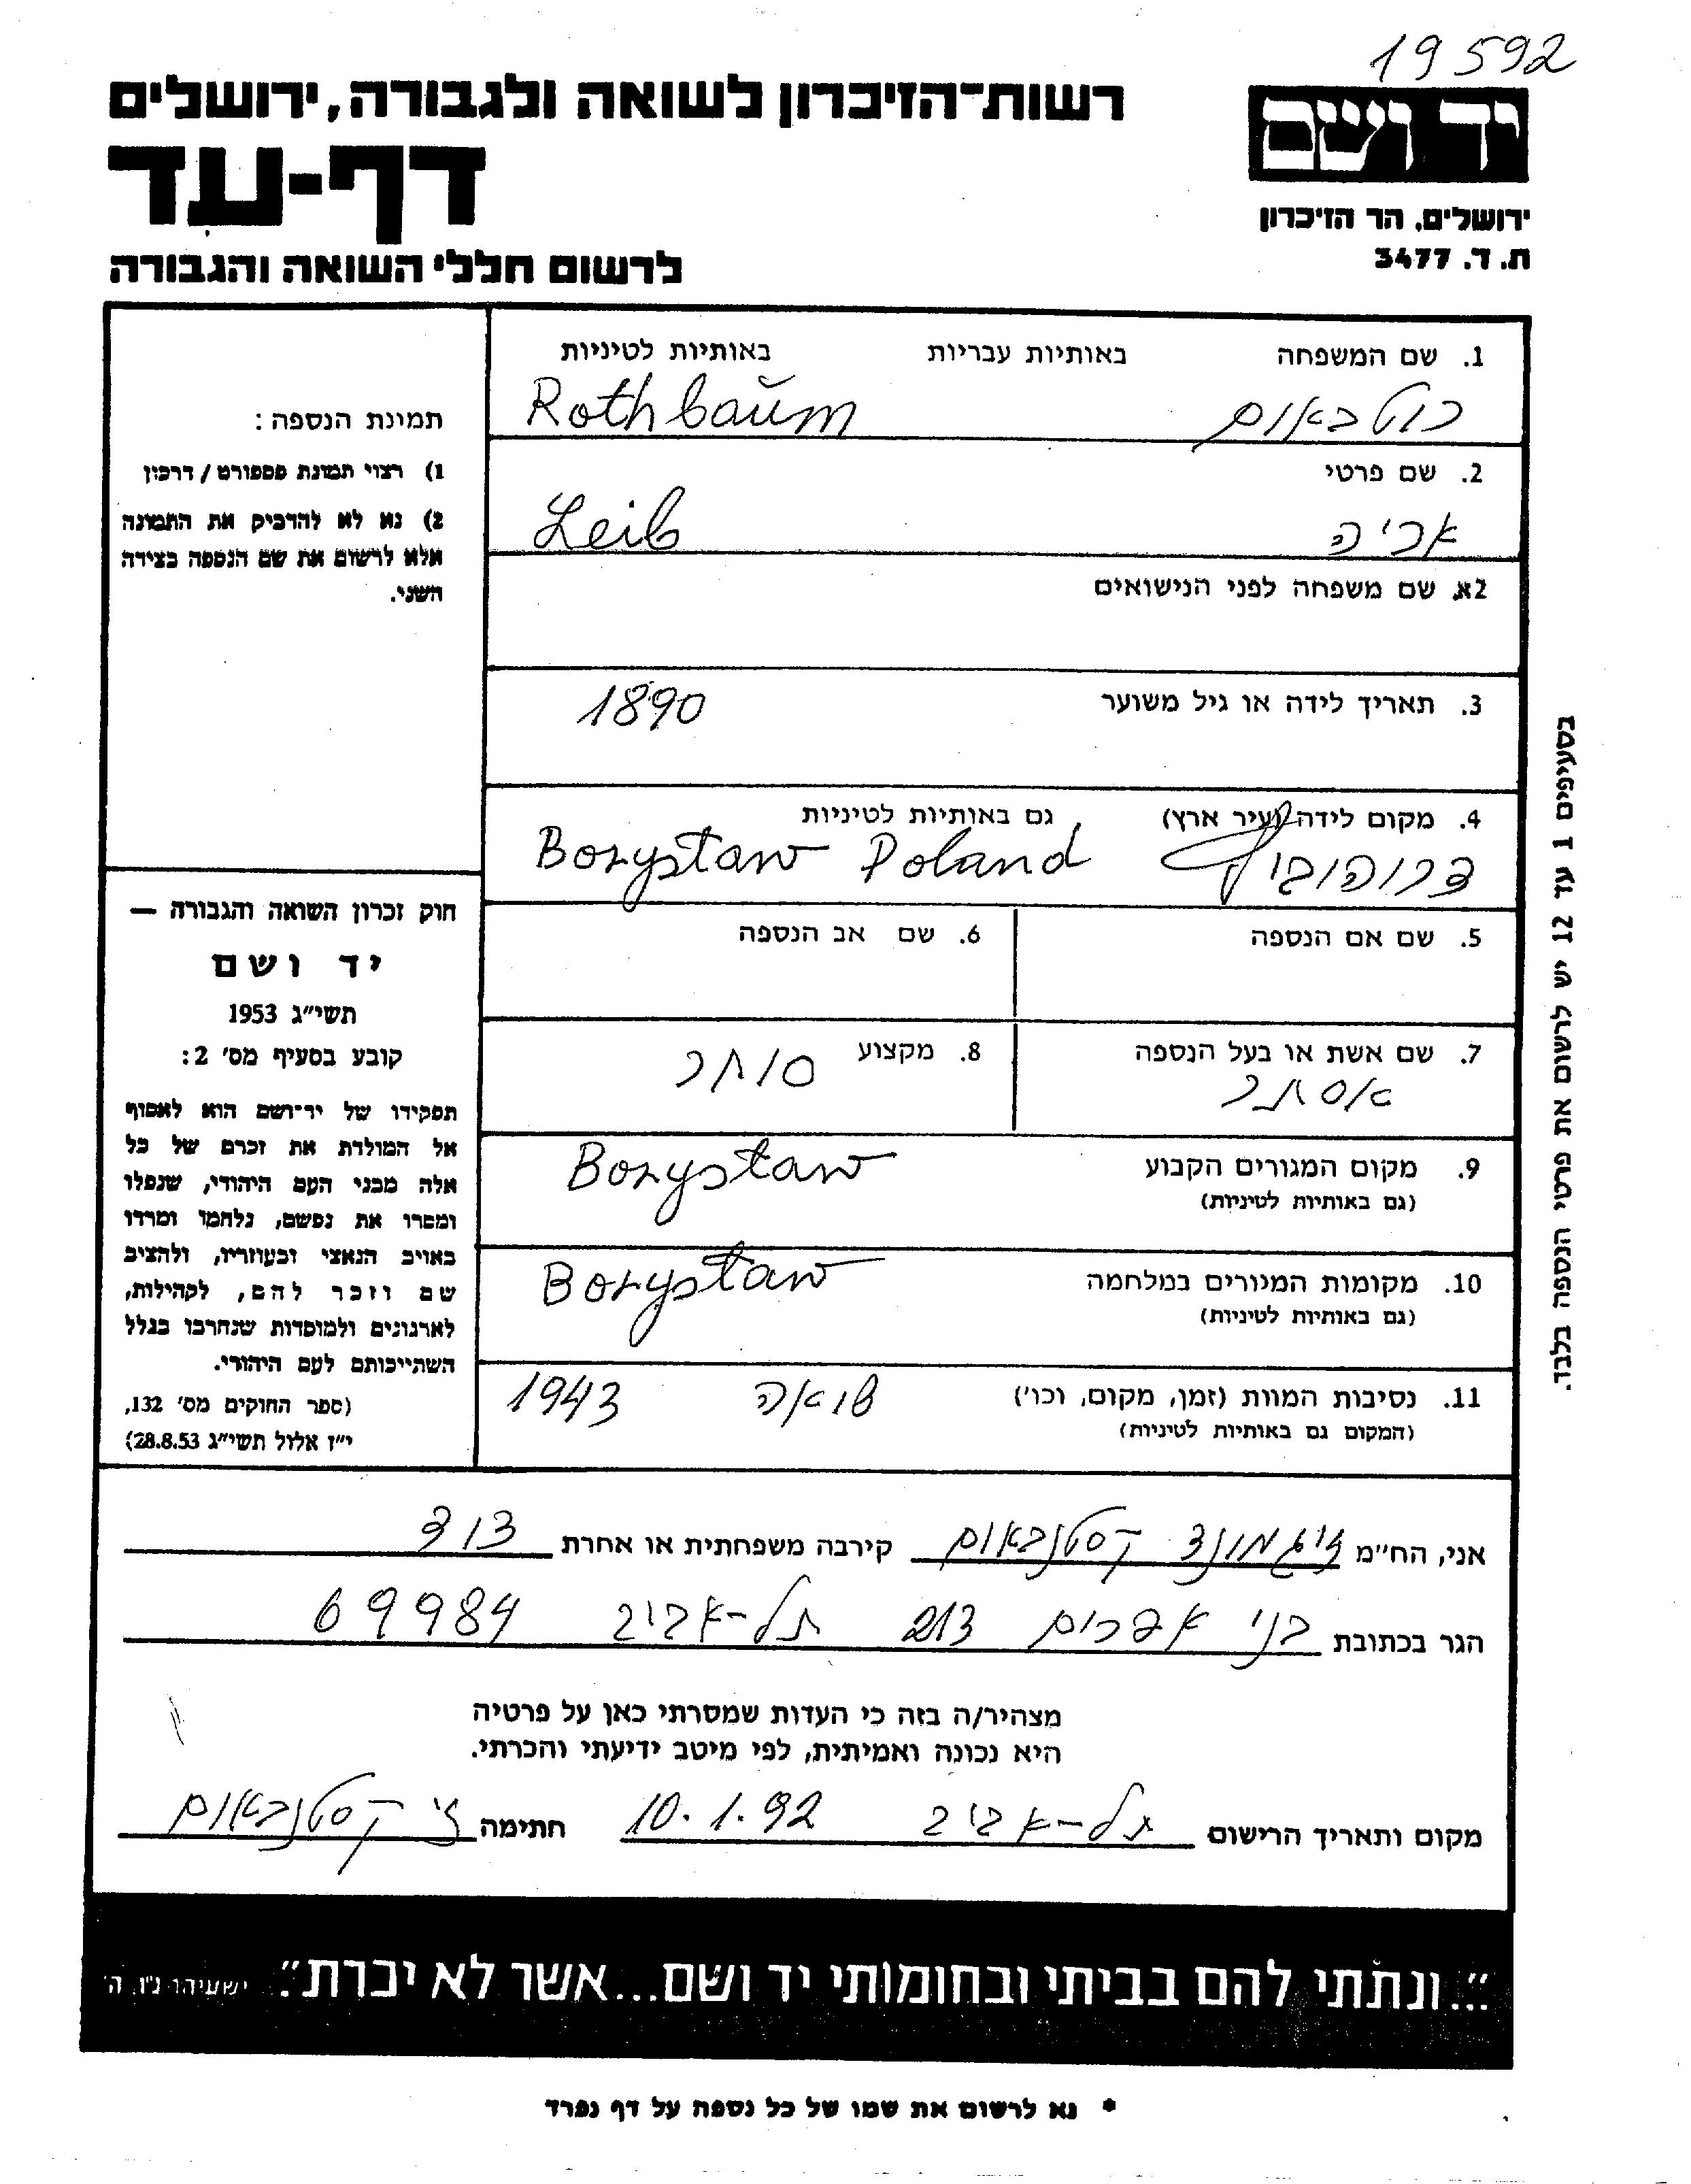 19592
יד ושם
ירושלים, הר הזיכרון
ת. ד. 3477
רשות־הזיכרון לשואה ולגבורה, ירושלים
דף-עד
לרשום חללי השואה והגבורה
1. שם המשפחה באותיות עבריות באותיות לטיניות
רוטבאום Rothbaum
2. שם פרטי
אריה Leib
2א. שם משפחה לפני הנישואים
3. תאריך לידה או גיל משוער 1890
4. מקום לידה (עיר ארץ) גם באותיות לטיניות
דרוהוביץ Borystaw Poland
5. שם אם הנספה 6. שם אב הנספה
7. שם אשת או בעל הנספה 8. מקצוע סוחר
אסתר
9. מקום המגורים הקבוע Borystaw
(גם באותיות לטיניות)
10. מקומות המגורים במלחמה Borystaw
(גם באותיות לטיניות)
11. נסיבות המוות (זמן, מקום, וכו') שואה 1943
(המקום גם באותיות לטיניות)
תמונת הנספה:
1) רצוי תמונת פספורט / דרכון
2) נא לא להדביק את התמונה
אלא לרשום את שם הנספה בצידה
השני.
חוק זכרון השואה והגבורה —
יד ושם
תשי״ג 1953
קובע בסעיף מס' 2:
תפקידו של יד־ושם הוא לאסוף
אל המולדת את זכרם של כל
אלה מבני העם היהודי, שנפלו
ומסרו את נפשם, נלחמו ומרדו
באויב הנאצי ובעוזריו, ולהציב
שם וזכר להם, לקהילות,
לארגונים ולמוסדות שנחרבו בגלל
השתייכותם לעם היהודי.
(ספר החוקים מס' 132,
י״ז אלול תשי״ג 28.8.53)
בסעיפים 1 עד 12 יש לרשום את פרטי הניספה בלבד.
אני, הח״מ זיגמונד קסטנבאום קירבה משפחתית או אחרת דוד
הגר בכתובת בני אפרים 213 תל-אביב 69984
מצהיר/ה בזה כי העדות שמסרתי כאן על פרטיה
היא נכונה ואמיתית, לפי מיטב ידיעתי והכרתי.
מקום ותאריך הרישום תל-אביב 10.1.92 חתימה ז' קסטנבאום
״...ונתתי להם בביתי ובחומותי יד ושם...אשר לא יכרת״. ישעיהו נ״ו, ה'
* נא לרשום את שמו של כל נספה על דף נפרד